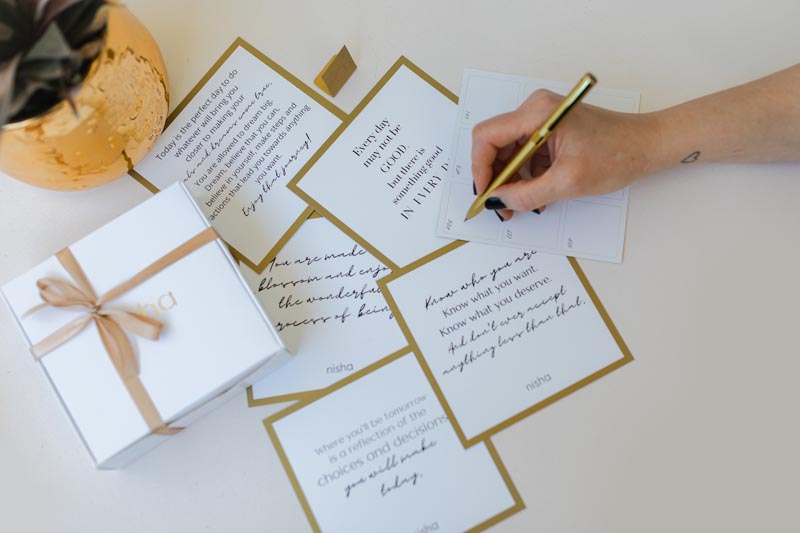 Today is the perfect day to do
whatever will bring you
closer to making your
and dreams come true.
You are allowed to dream big.
Dream, believe that you can,
believe in yourself, make steps and
actions that lead you towards anything
you want.
Enjoy that journey!
Every day
may not be
GOOD,
but there is
something good
IN EVERY
You are made
blossom and enjoy
the wonderful
process of being
nisha
Know who you are.
Know what you want.
Know what you deserve.
And don't ever accept
anything less than that.
nisha
where you'll be tomorrow
is a reflection of the
choices and decisions
you will make
today.
nisha